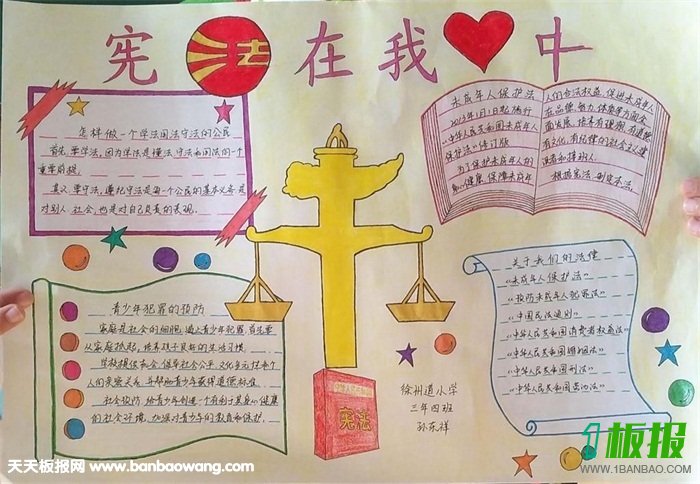 宪法在我中
怎样做一个学法用法守法的公民
首先,要学法,因为学法是懂法、守法和用法的一个
重要前提。
其次,要守法,遵纪守法是每一个公民的基本义务,是
对别人、社会,也是对自己负责的表现。
未成年人保护法
2013年1月1日起施行
《中华人民共和国未成年人
保护法》修订版
为了保护未成年人的
身心健康,保障未成年
人的合法权益,促进未成年人
在品德、智力、体质等方面全
面发展,培养有理想、有道德、
有文化、有纪律的社会主义建
设者和接班人,
根据宪法,制定本法。
青少年犯罪的预防
家庭是社会的细胞,遏止青少年犯罪,首先要
从家庭抓起,培养孩子良好的生活习惯。
人们亲密关系,并帮助青少年获得道德标准。
社会预防,给青少年创造一个有利于其身心健康
的社会环境,加强对青少年的教育和保护。
关于我们的法律
《未成年人保护法》
《预防未成年人犯罪法》
《中国民法通则》
《中华人民共和国消费者权益法》
《中华人民共和国婚姻法》
《中华人民共和国刑法》
《中华人民共和国宪法》
宪法
徐州道小学
三年四班
孙东祥
天天板报网 www.banbaowang.com
1板报
WWW.1BANBAO.COM